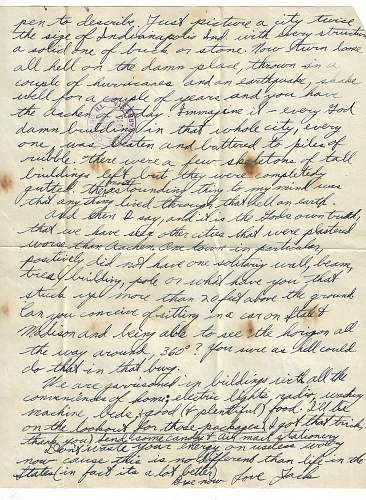 pen to describe. Just picture a city twice
the size of Indianapolis Ind. with every structure
a solid one of brick or stone. Now turn loose
all hell on the damn place, thrown in a
couple of hurricanes and an earthquake, shake
well for a couple of years and you have
the Aachen of today. Immagine it - every God
damn building in that whole city, every
one was beaten and battered to piles of
rubble. There were a few skeletons of tall
buildings left but they were completely
gutted. The most astounding thing to my mind was
that anything lived through that hell on earth.
And then I say, and it is the Gods own truth,
that we have seen other cities that were plastered
worse than Aachen. One town in particular,
positively did not have one solitary wall, beam,
tree, building, pole or what have you that
stuck up more than 20 feet above the ground.
Can you conceive of sitting in a car on State &
Madison and being able to see the horizon all
the way around, 360°? You sure as hell could
do that in that burg.
We are garrisoned in buildings with all the
conveniences of home; electric lights, radio, washing
machine, beds, good (& plentiful) food. I'll be
on the lookout for those packages. (I got that trick,
thank you) Send some candy & air mail stationary
Don't waste your energy on useless worry
now cause this is no different than life in the
States (in fact its a lot better)
Bye now Love Jack